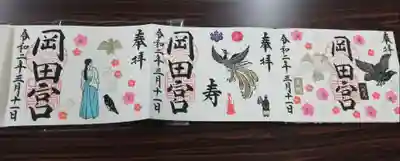 奉拝
岡田宮
令和二年三月十一日
奉拝
寿
令和二年三月十一日
岡田宮
奉拝
岡田宮
令和二年三月十一日